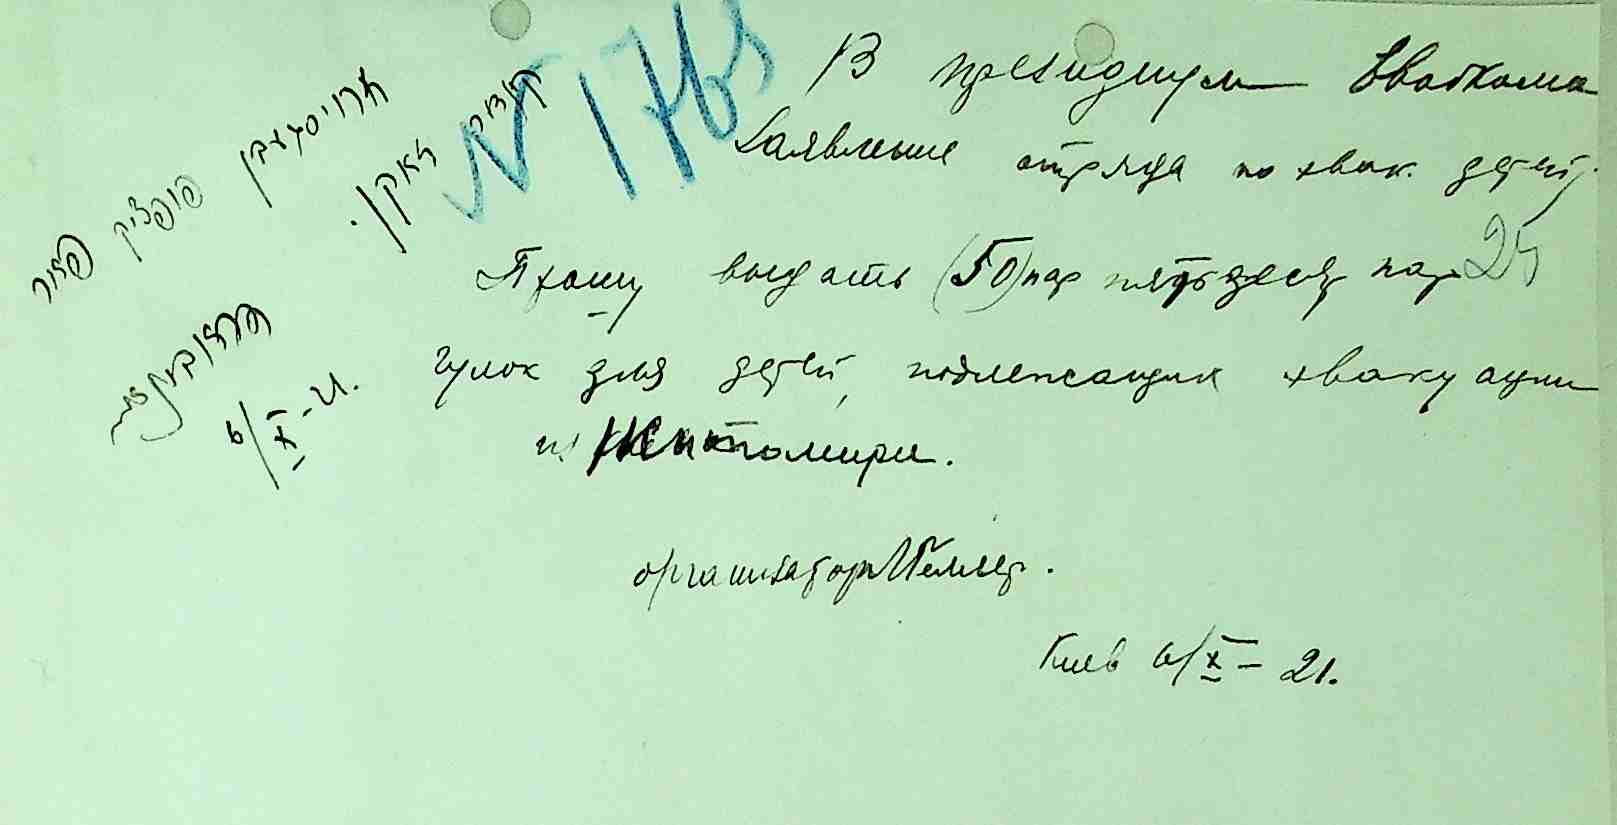 № 1765
В президиум Евобкома
Заявление отряда по эвак. детей.
Прошу выдать (50) пар пятьдесят пар 25
чулок для детей, подлежащих эвакуации
из Житомира.
организатор
Киев 6/X – 21.
ארויסגעבן פופציק פאר
זאקן.
6/X – 21.